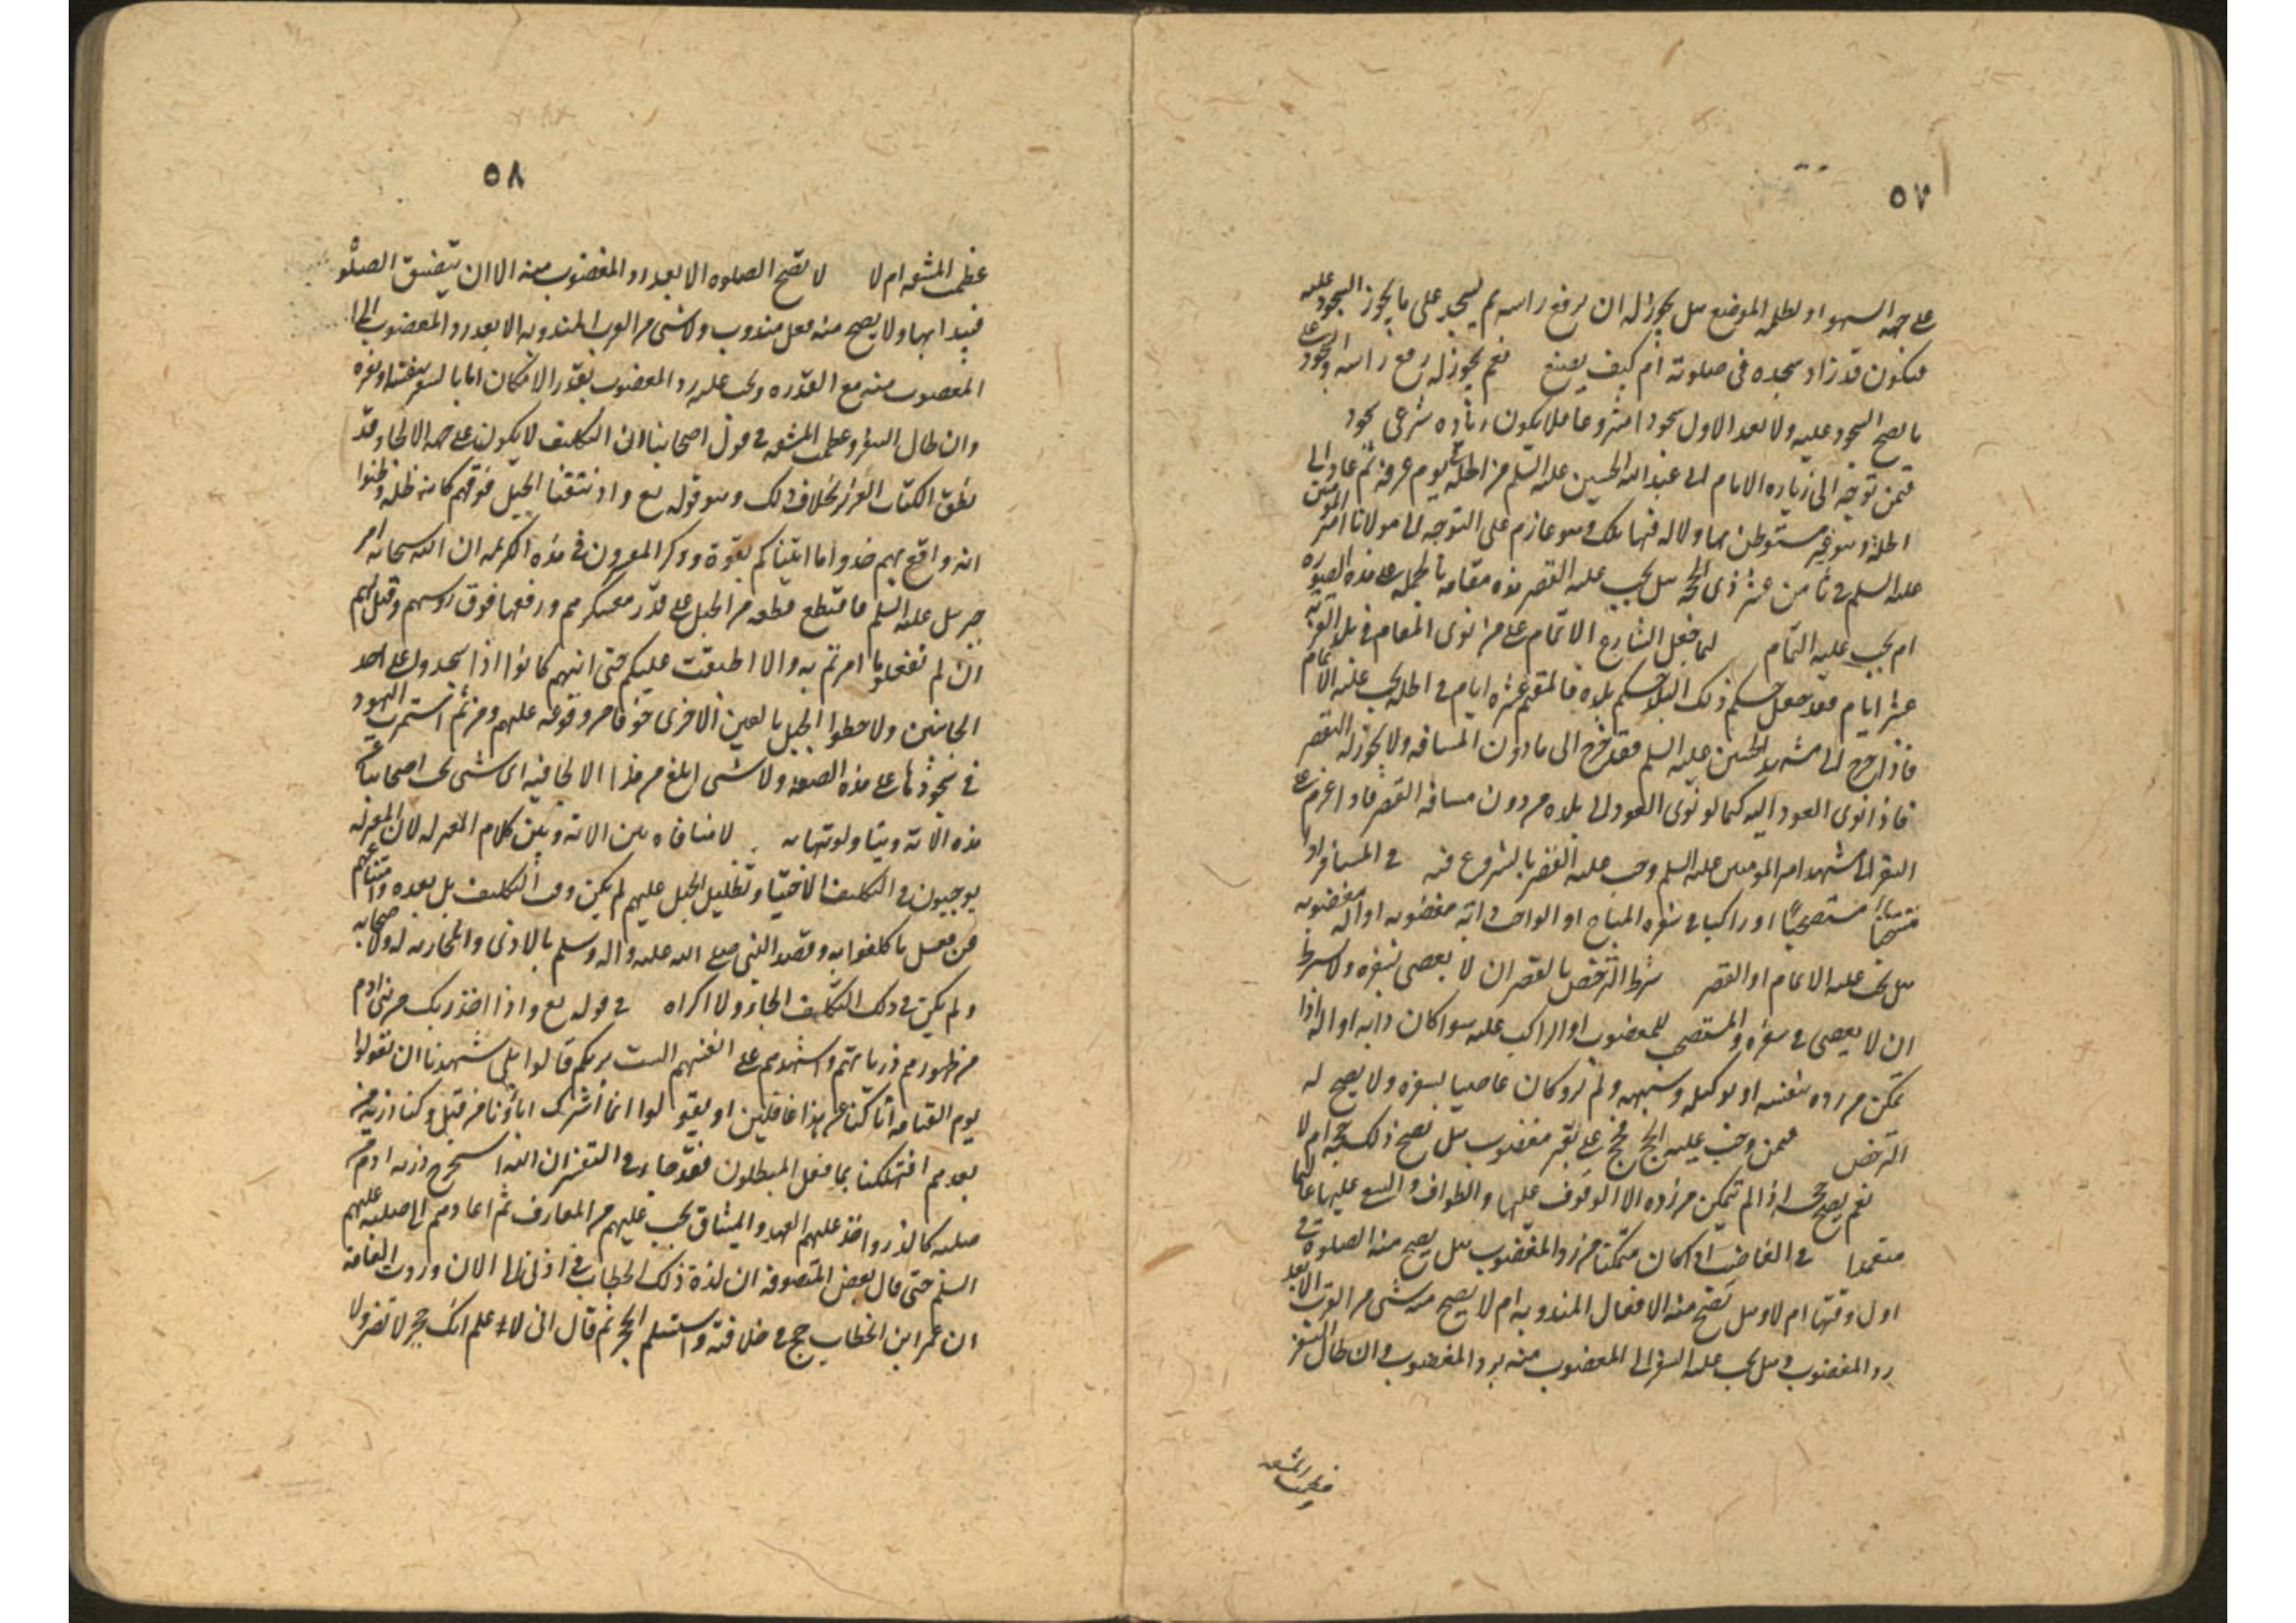 ٥٧
على جهة السهو او لظلمة الموضع هل يجوز له ان يرفع راسه ثم يسجد على ما يجوز السجود عليه
فيكون قد زاد سجدة في صلوته ام كيف يصنع نعم يجوز له رفع راسه والسجود على
ما يصح السجود عليه ولا يعد الاول سجودا مشروعا فلا يكون زيادة شرعي سجود
فيمن توجه الى زيارة الامام ابي عبد الله الحسين عليه السلم من الحلة يوم عرفة ثم عاد الى
الحلة وهو غير مستوطن بها ولا له فيها ملك وهو عازم على التوجه الى مولانا امير المومنين
عليه السلم في ثامن عشر ذي الحجة هل يجب عليه القصر مدة مقامه بالحلة على هذه الصورة
ام يجب عليه التمام لما جعل الشارع الاتمام على من نوى المقام في بلد الغربة
عشرة ايام فقد جعل حكم ذلك البلد حكم بلده فالمقيم عشرة ايام في الحلة يجب عليه الاتمام
فاذا خرج الى مشهد الحسين عليه السلم فقد خرج الى ما دون المسافة ولا يجوز له التقصير
فاذا نوى العود اليه كما لو نوى العود الى بلده من دون مسافة القصر فاذا عزم على
السفر الى مشهد امير المومنين عليه السلم وجب عليه القصر بالشروع فيه في المسافر اذا
مستصحبا او راكبا في سفره المباح او الواجب دابة مغصوبة او الة مغصوبة
هل يجب عليه الاتمام او القصر شرط الترخص بالقصر ان لا يعصي بسفره ولا يشترط
ان لا يعصي في سفره والمستصحب للمغصوب او الراكب عليه سواء كان دابة او الة اذا
تمكن من رده بنفسه او بوكيله وشبهه ولم يرد كان عاصيا بسفره ولا يصح له
الترخص فيمن وجب عليه الحج فحج على بعير مغصوب هل يصح ذلك حجه ام لا
نعم يصح حجه اذا لم يتمكن من رده الا الوقوف عليها والطواف والسعي عليها عالما
متعمدا في الغاصب اذا كان متمكنا من رد المغصوب هل يصح منه الصلوة في
اول وقتها ام لا وهل تصح منه الافعال المندوبة ام لا يصح منه شيء من القرب الا بعد
رد المغصوب وهل يجب عليه السفر الى المغصوب منه برد المغصوب وان طال السفر
وعظمت المشقة
٥٨
عظمت المشقة ام لا لا تصح الصلوة الا بعد رد المغصوب منه الا ان يتضيق الصلوة
فيبدا بها ولا يصح منه فعل مندوب ولا شيء من القرب المندوبة الا بعد رد المغصوب الى
المغصوب منه مع القدرة ويجب عليه رد المغصوب بقدر الامكان اما بالسفر بنفسه او بغيره
وان طال السفر وعظمت المشقة في قول اصحابنا ان التكليف لا يكون على جهة الالجاء وقد
نطق الكتاب العزيز بخلاف ذلك وهو قوله تع واذ نتقنا الجبل فوقهم كانه ظلة وظنوا
انه واقع بهم خذوا ما اتيناكم بقوة وذكر المفسرون في هذه الكريمة ان الله سبحانه امر
جبرئيل عليه السلم فاقتطع قطعة من الجبل على قدر معسكرهم ورفعها فوق رؤسهم وقيل لهم
ان لم تفعلوا ما امرتم به والا اطبقت عليكم حتى انهم كانوا اذا سجدوا على احد
الجانبين ولاحظوا الجبل بالعين الاخرى خوفا من وقوعه عليهم ومن ثم استمرت اليهود
في سجودها على هذه الصفة ولا شيء ابلغ من هذا الالجاء فباي شيء يجيب اصحابنا عن
هذه الاية ويتاولونها به لا منافاة بين الاية وبين كلام المعتزلة لان المعتزلة
يوجبون في التكليف الاختيار وتظليل الجبل عليهم لم يكن وقت التكليف بل بعده وامتناعهم
من فعل ما كلفوا به وقصد النبي صلى الله عليه واله وسلم بالاذى والمحاربة له ولاصحابه
ولم يكن في ذلك التكليف الجاء ولا اكراه في قوله تع واذا اخذ ربك من بني ادم
من ظهورهم ذرياتهم واشهدهم على انفسهم الست بربكم قالوا بلى شهدنا ان تقولوا
يوم القيامة انا كنا عن هذا غافلين او يقولوا انما أشرك اباؤنا من قبل وكنا ذرية من
بعدهم افتهلكنا بما فعل المبطلون فقد جاء في التفسير ان الله استخرج ذرية ادم من
صلبه كالذر واخذ عليهم العهد والميثاق بما يجب عليهم من المعارف ثم اعادهم الى صلبه عليهم
السلم حتى قال بعض المتصوفة ان لذة ذلك الخطاب في اذني الى الان وروت العامة
ان عمر ابن الخطاب حج في خلافته واستلم الحجر ثم قال اني لاعلم انك حجر لا تضر ولا